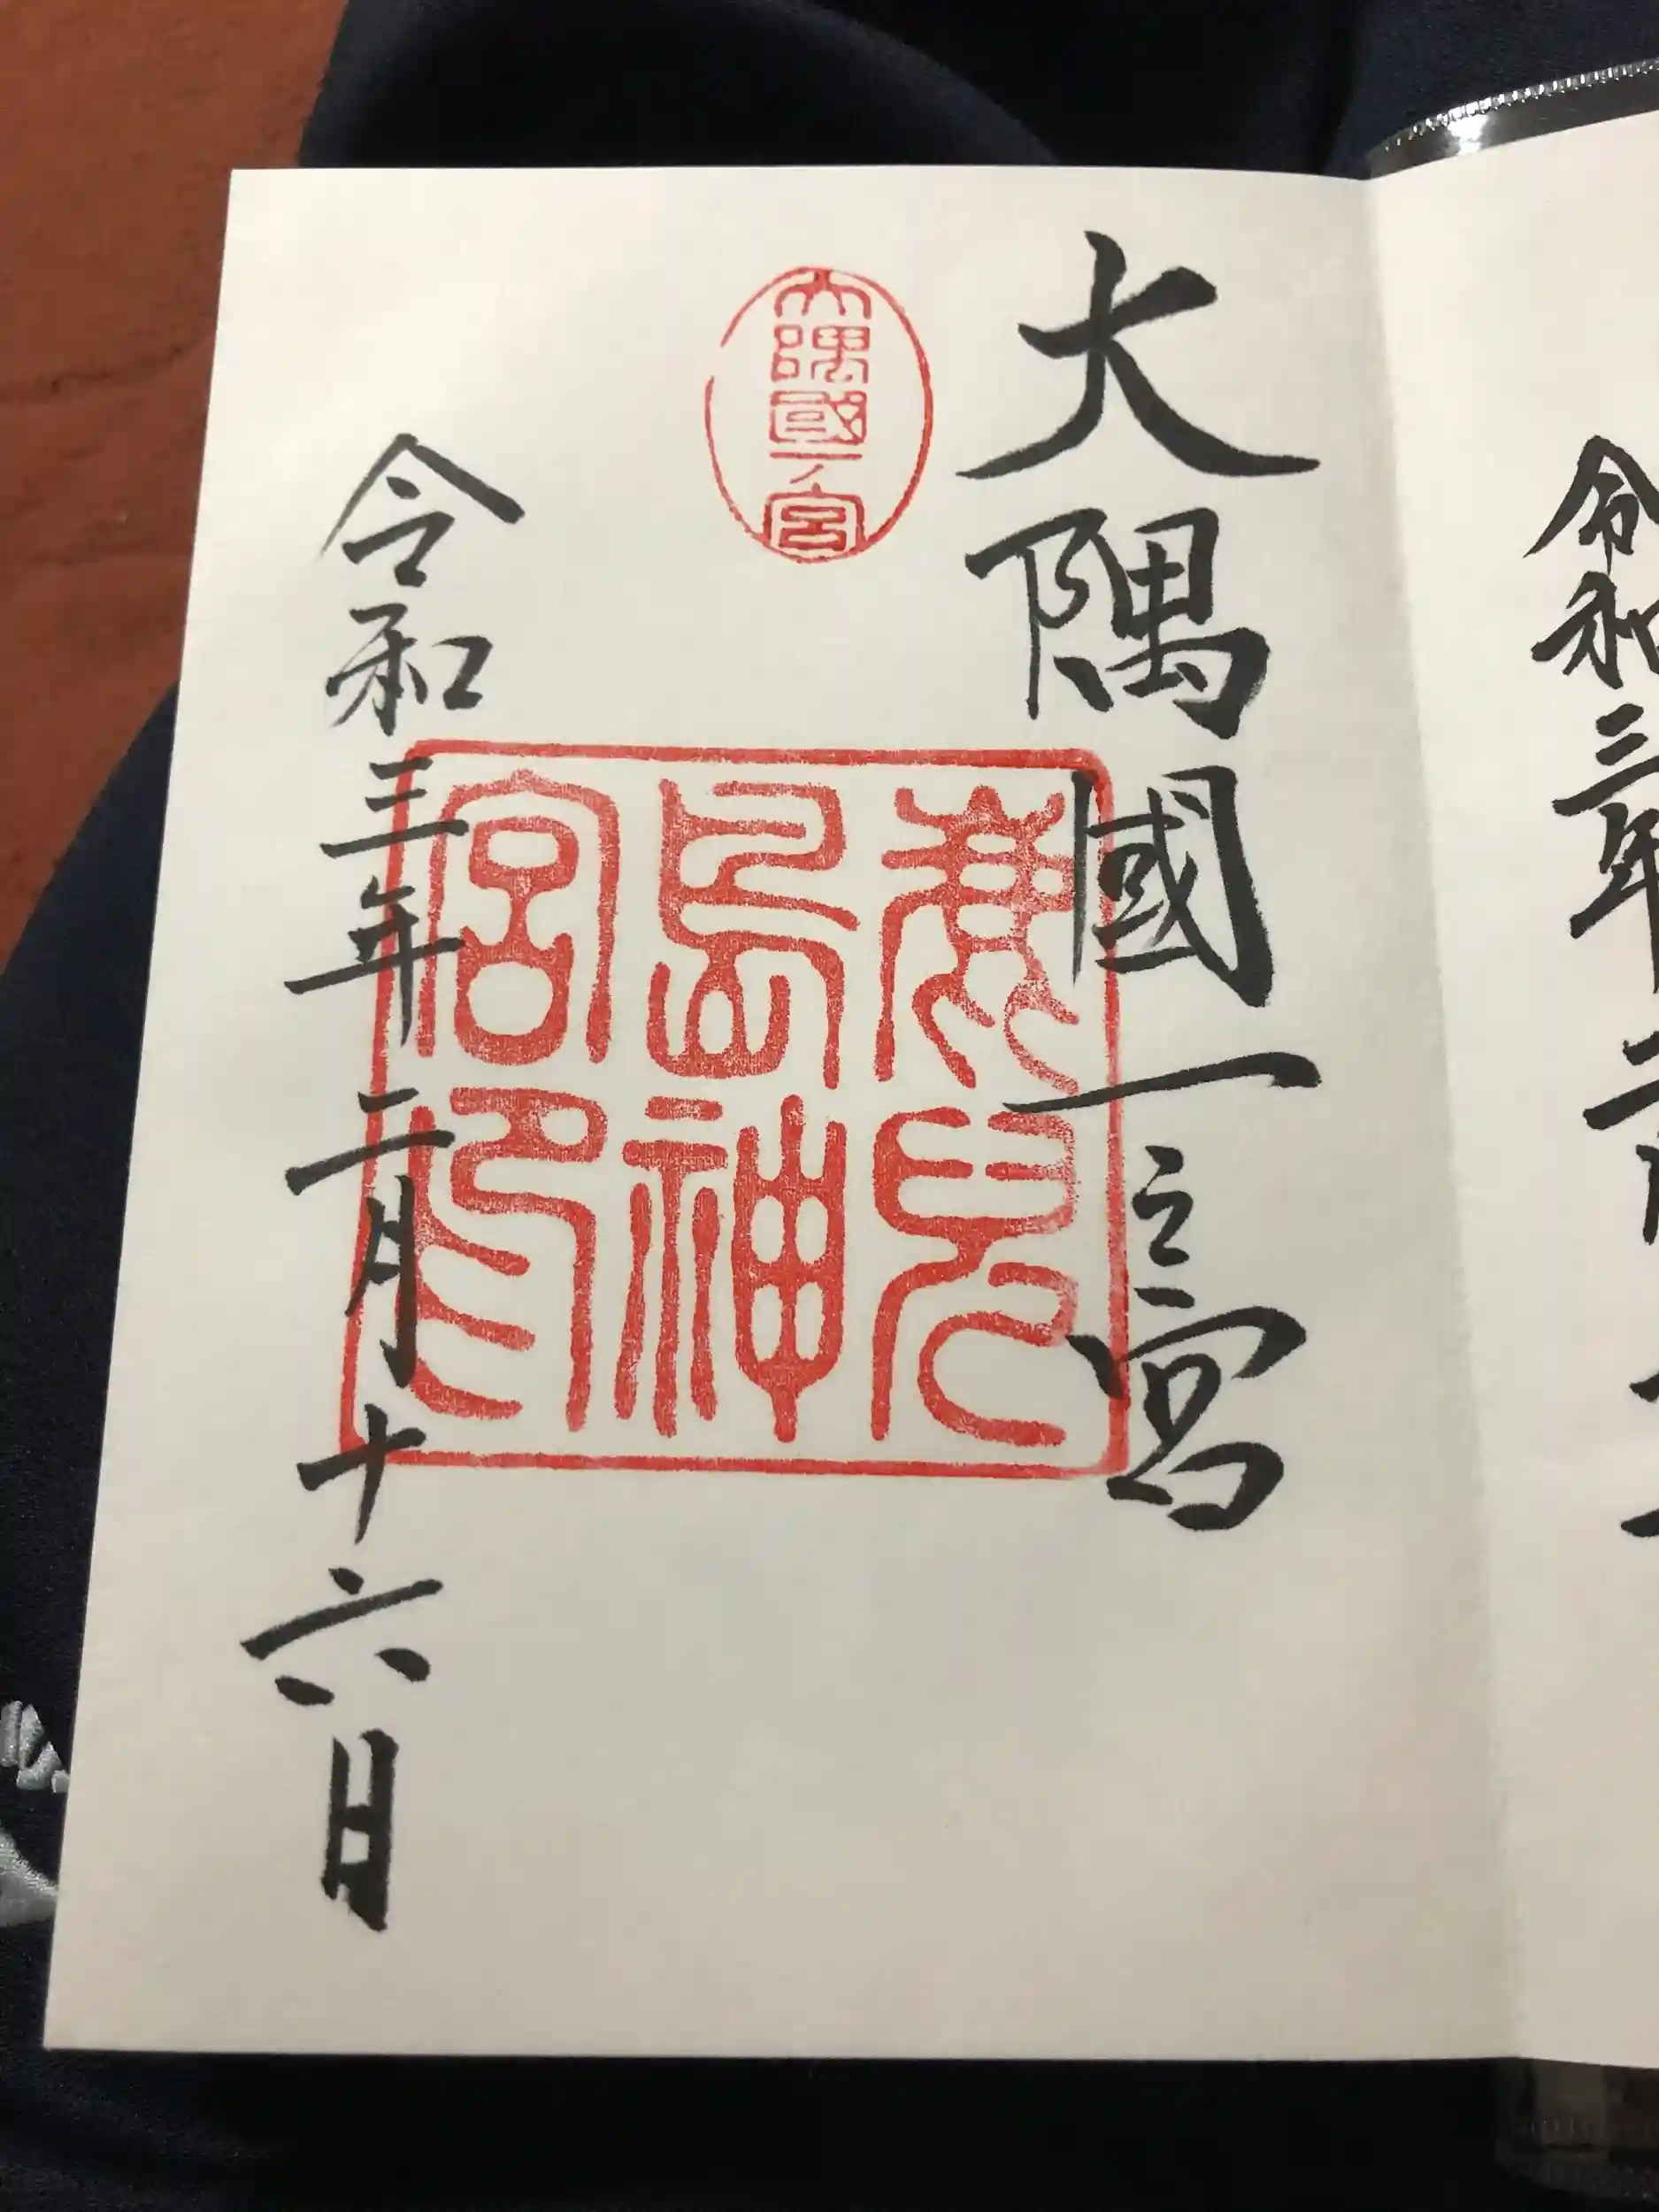 令和三年二
大隅國一之宮
大隅國一ノ宮
鹿兒
島神
宮印
令和三年二月十六日